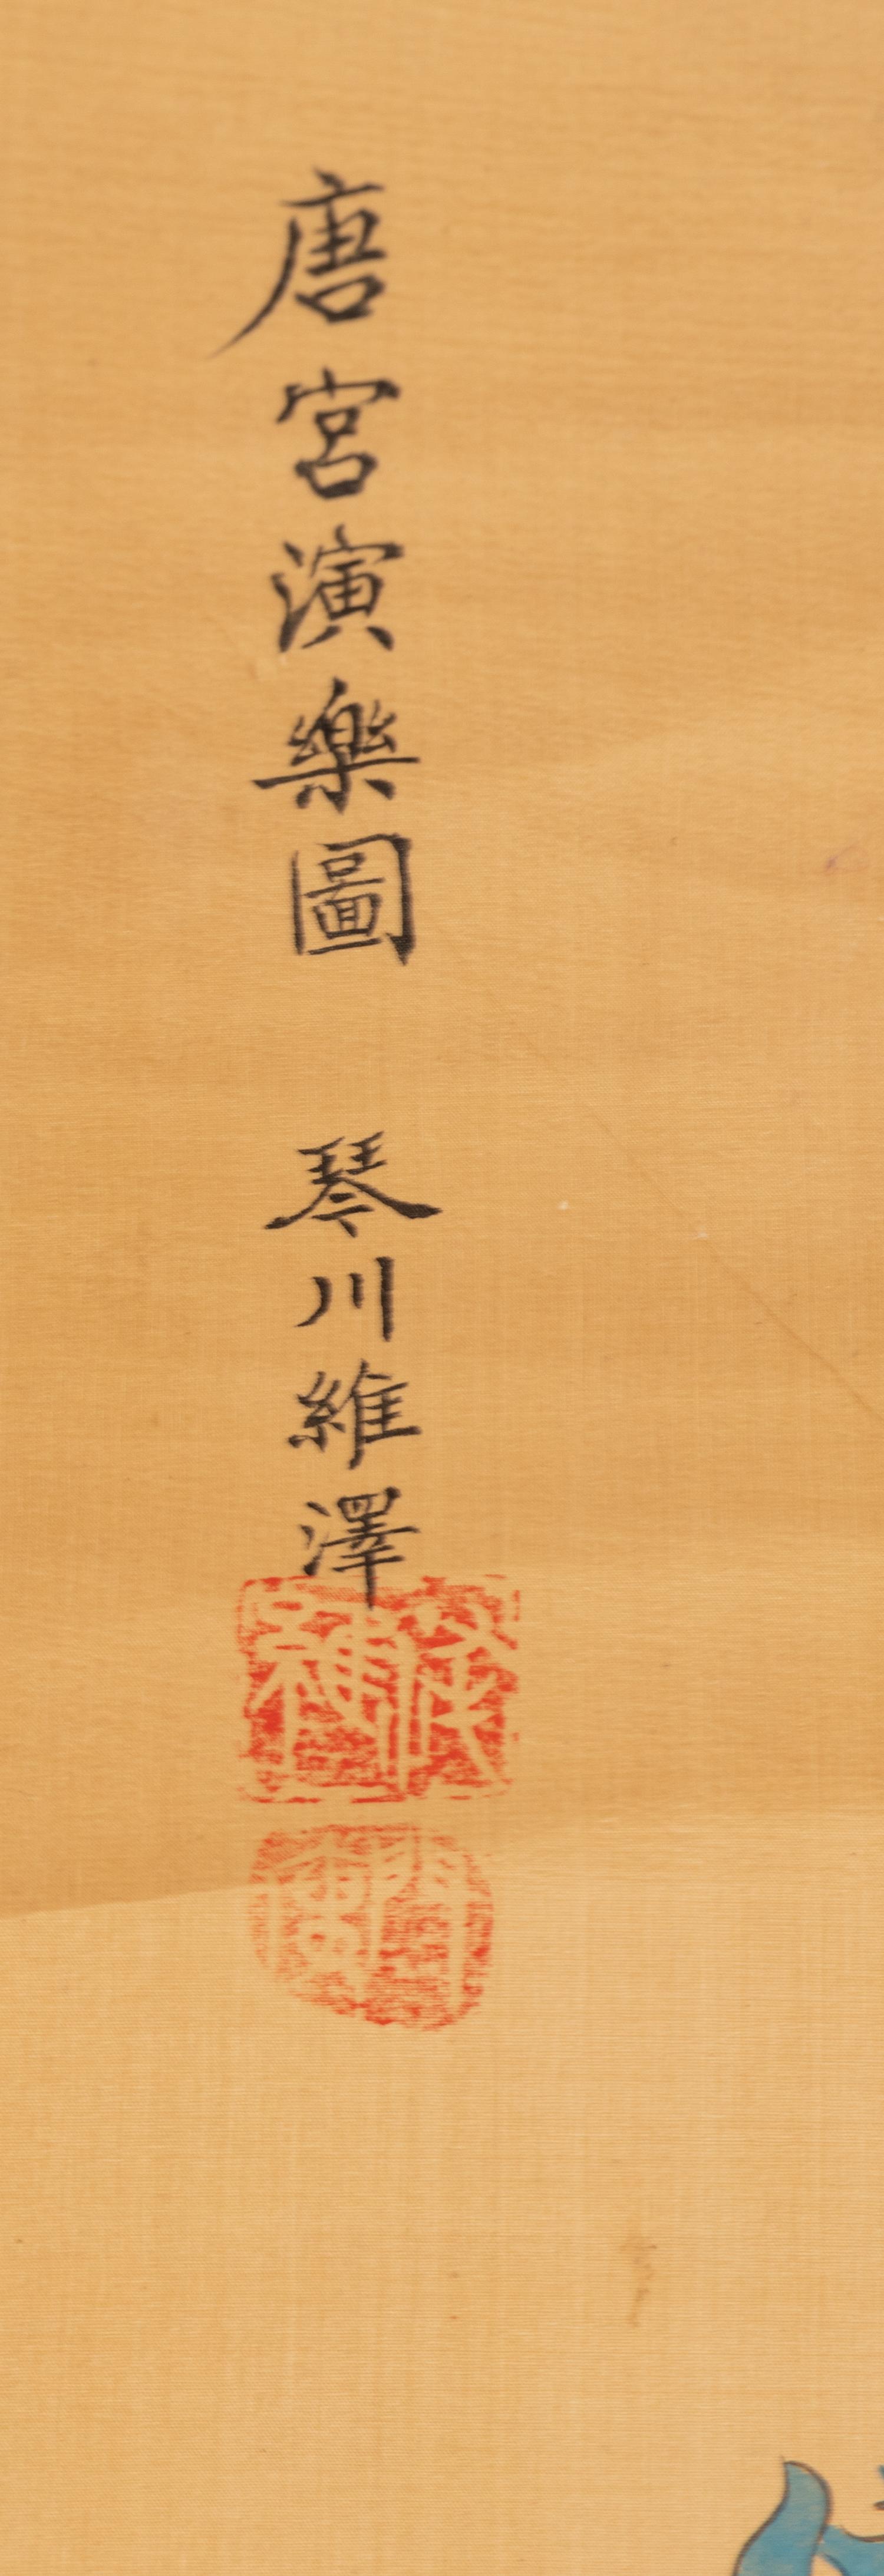 唐宮演樂圖 琴川維澤